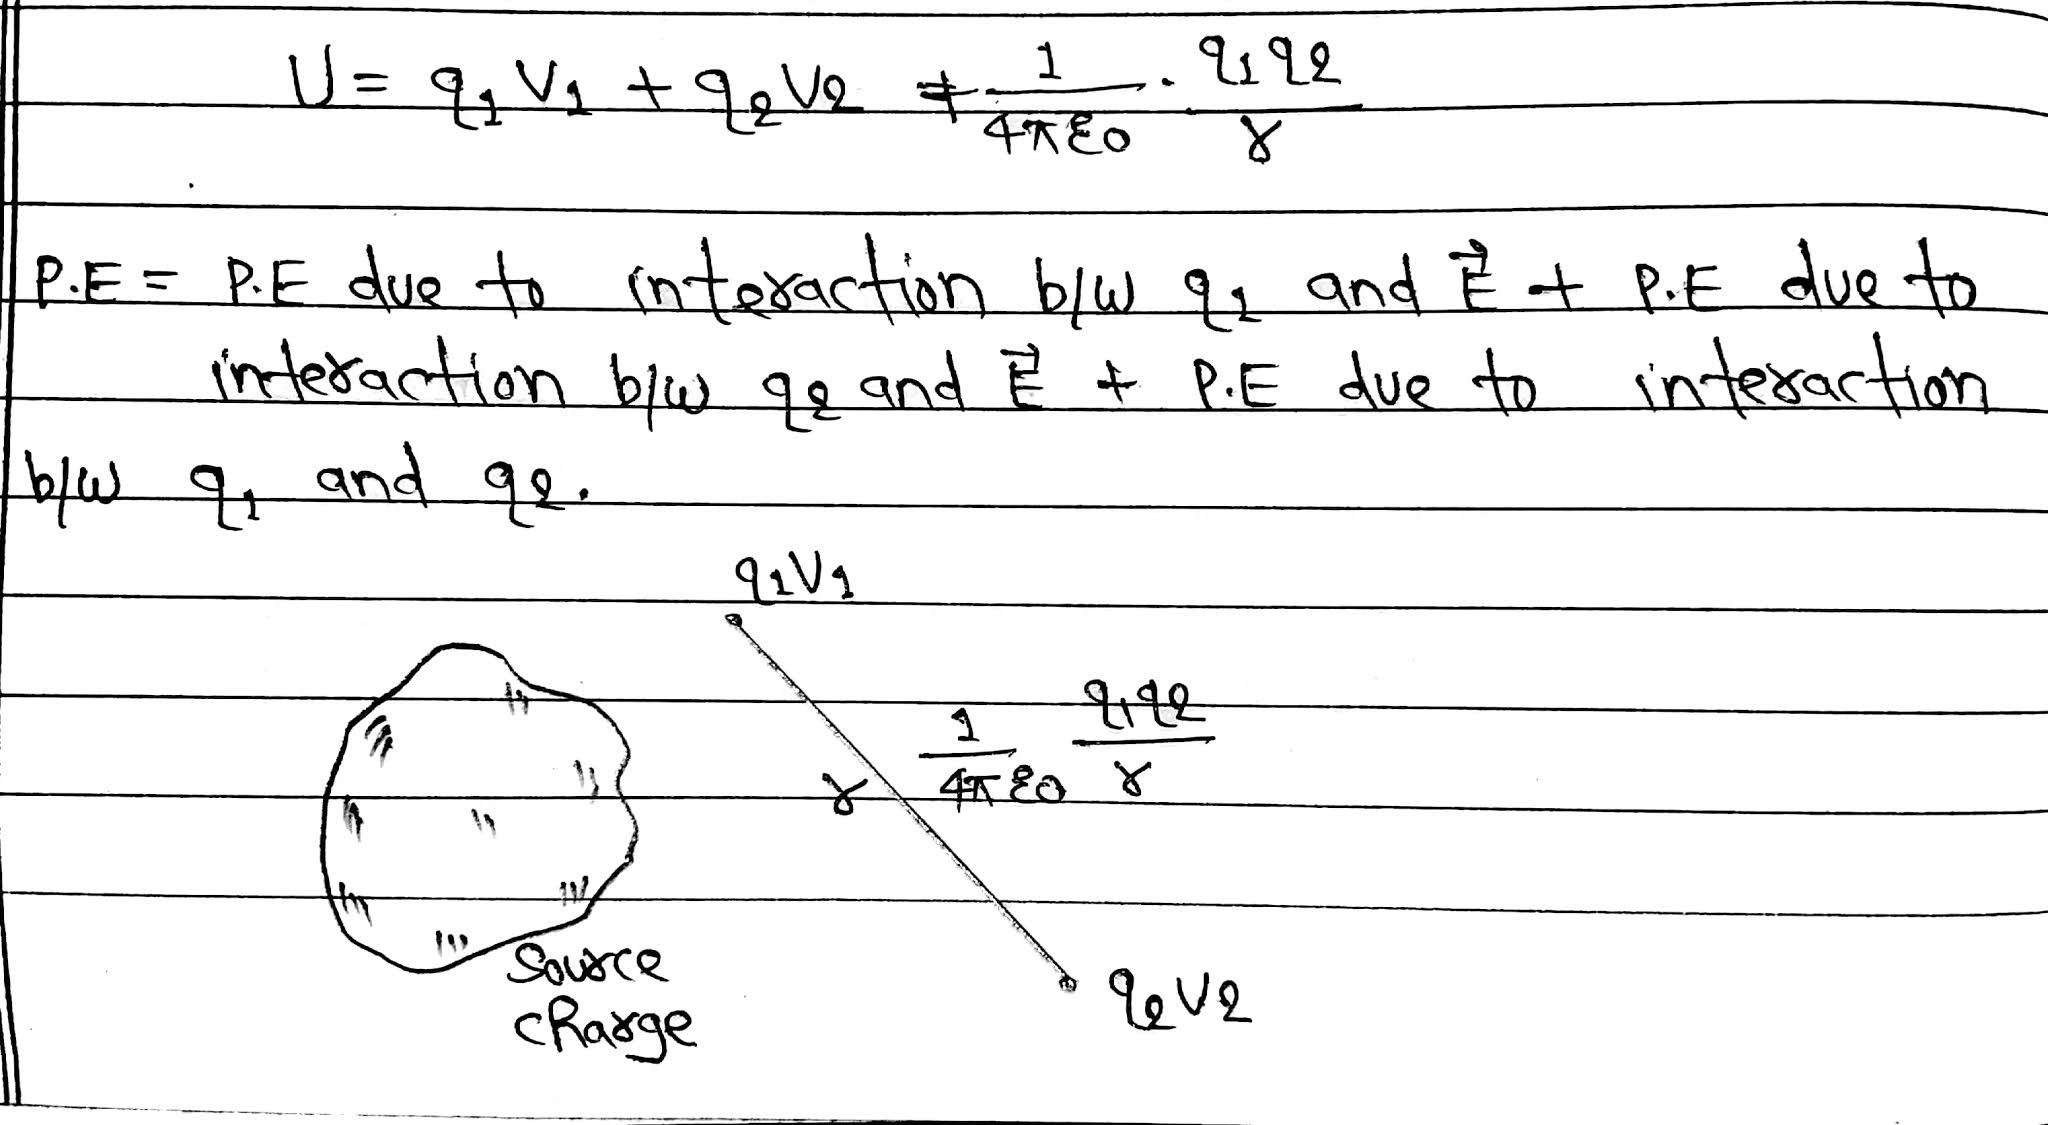 U = q₁V₁ + q₂V₂ + 1/4πε₀ · q₁q₂/r
P.E = P.E due to interaction b/w q₁ and E⃗ + P.E due to
interaction b/w q₂ and E⃗ + P.E due to interaction
b/w q₁ and q₂.
q₁V₁
r 1/4πε₀ q₁q₂/r
Source
charge
q₂V₂